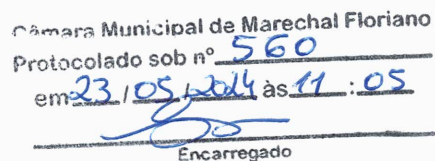 Câmara Municipal de Marechal Floriano
Protocolado sob nº 560
em 23 / 05 / 2024 às 11 : 05
Encarregado